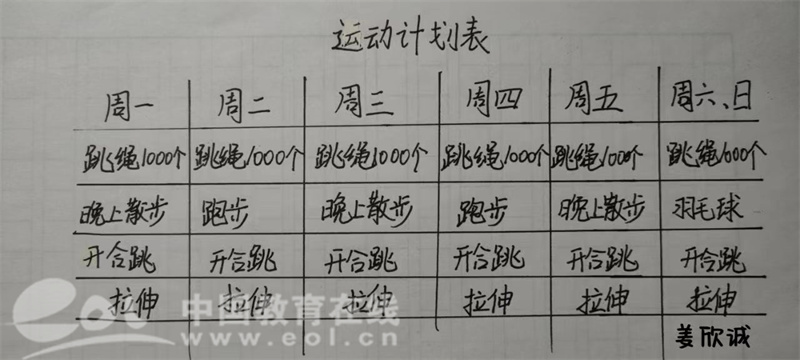 运动计划表
周一 周二 周三 周四 周五 周六、日
跳绳1000个 跳绳1000个 跳绳1000个 跳绳1000个 跳绳1000个 跳绳1000个
晚上散步 跑步 晚上散步 跑步 晚上散步 羽毛球
开合跳 开合跳 开合跳 开合跳 开合跳 开合跳
拉伸 拉伸 拉伸 拉伸 拉伸 拉伸
eol 中国教育在线
www.eol.cn
姜欣诚